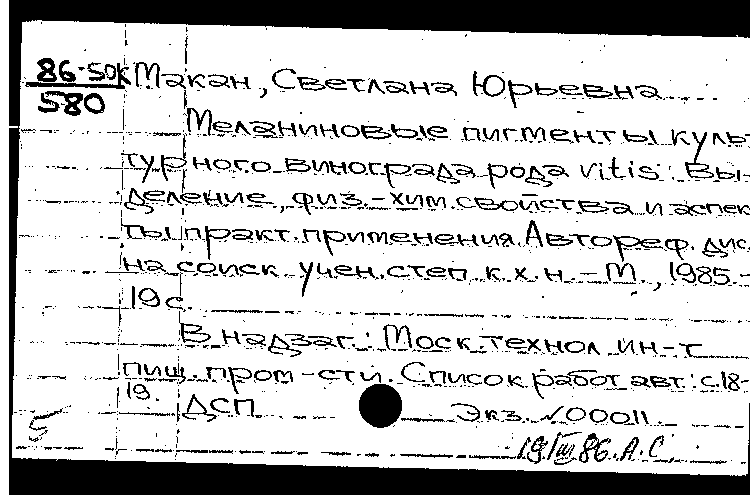 86-50к Макан, Светлана Юрьевна
580
Меланиновые пигменты куль-
турного винограда рода vitis: Вы-
деление, физ.-хим. свойства и аспек-
ты практ. применения. Автореф. дис.
на соиск. учен. степ. к.х.н. - М., 1985.-
19 с.
В надзаг.: Моск. технол. ин-т
пищ. пром-сти. Список работ авт.: с.18-
19.
ДСП Экз. №00011
5
19/III 86. А.С.